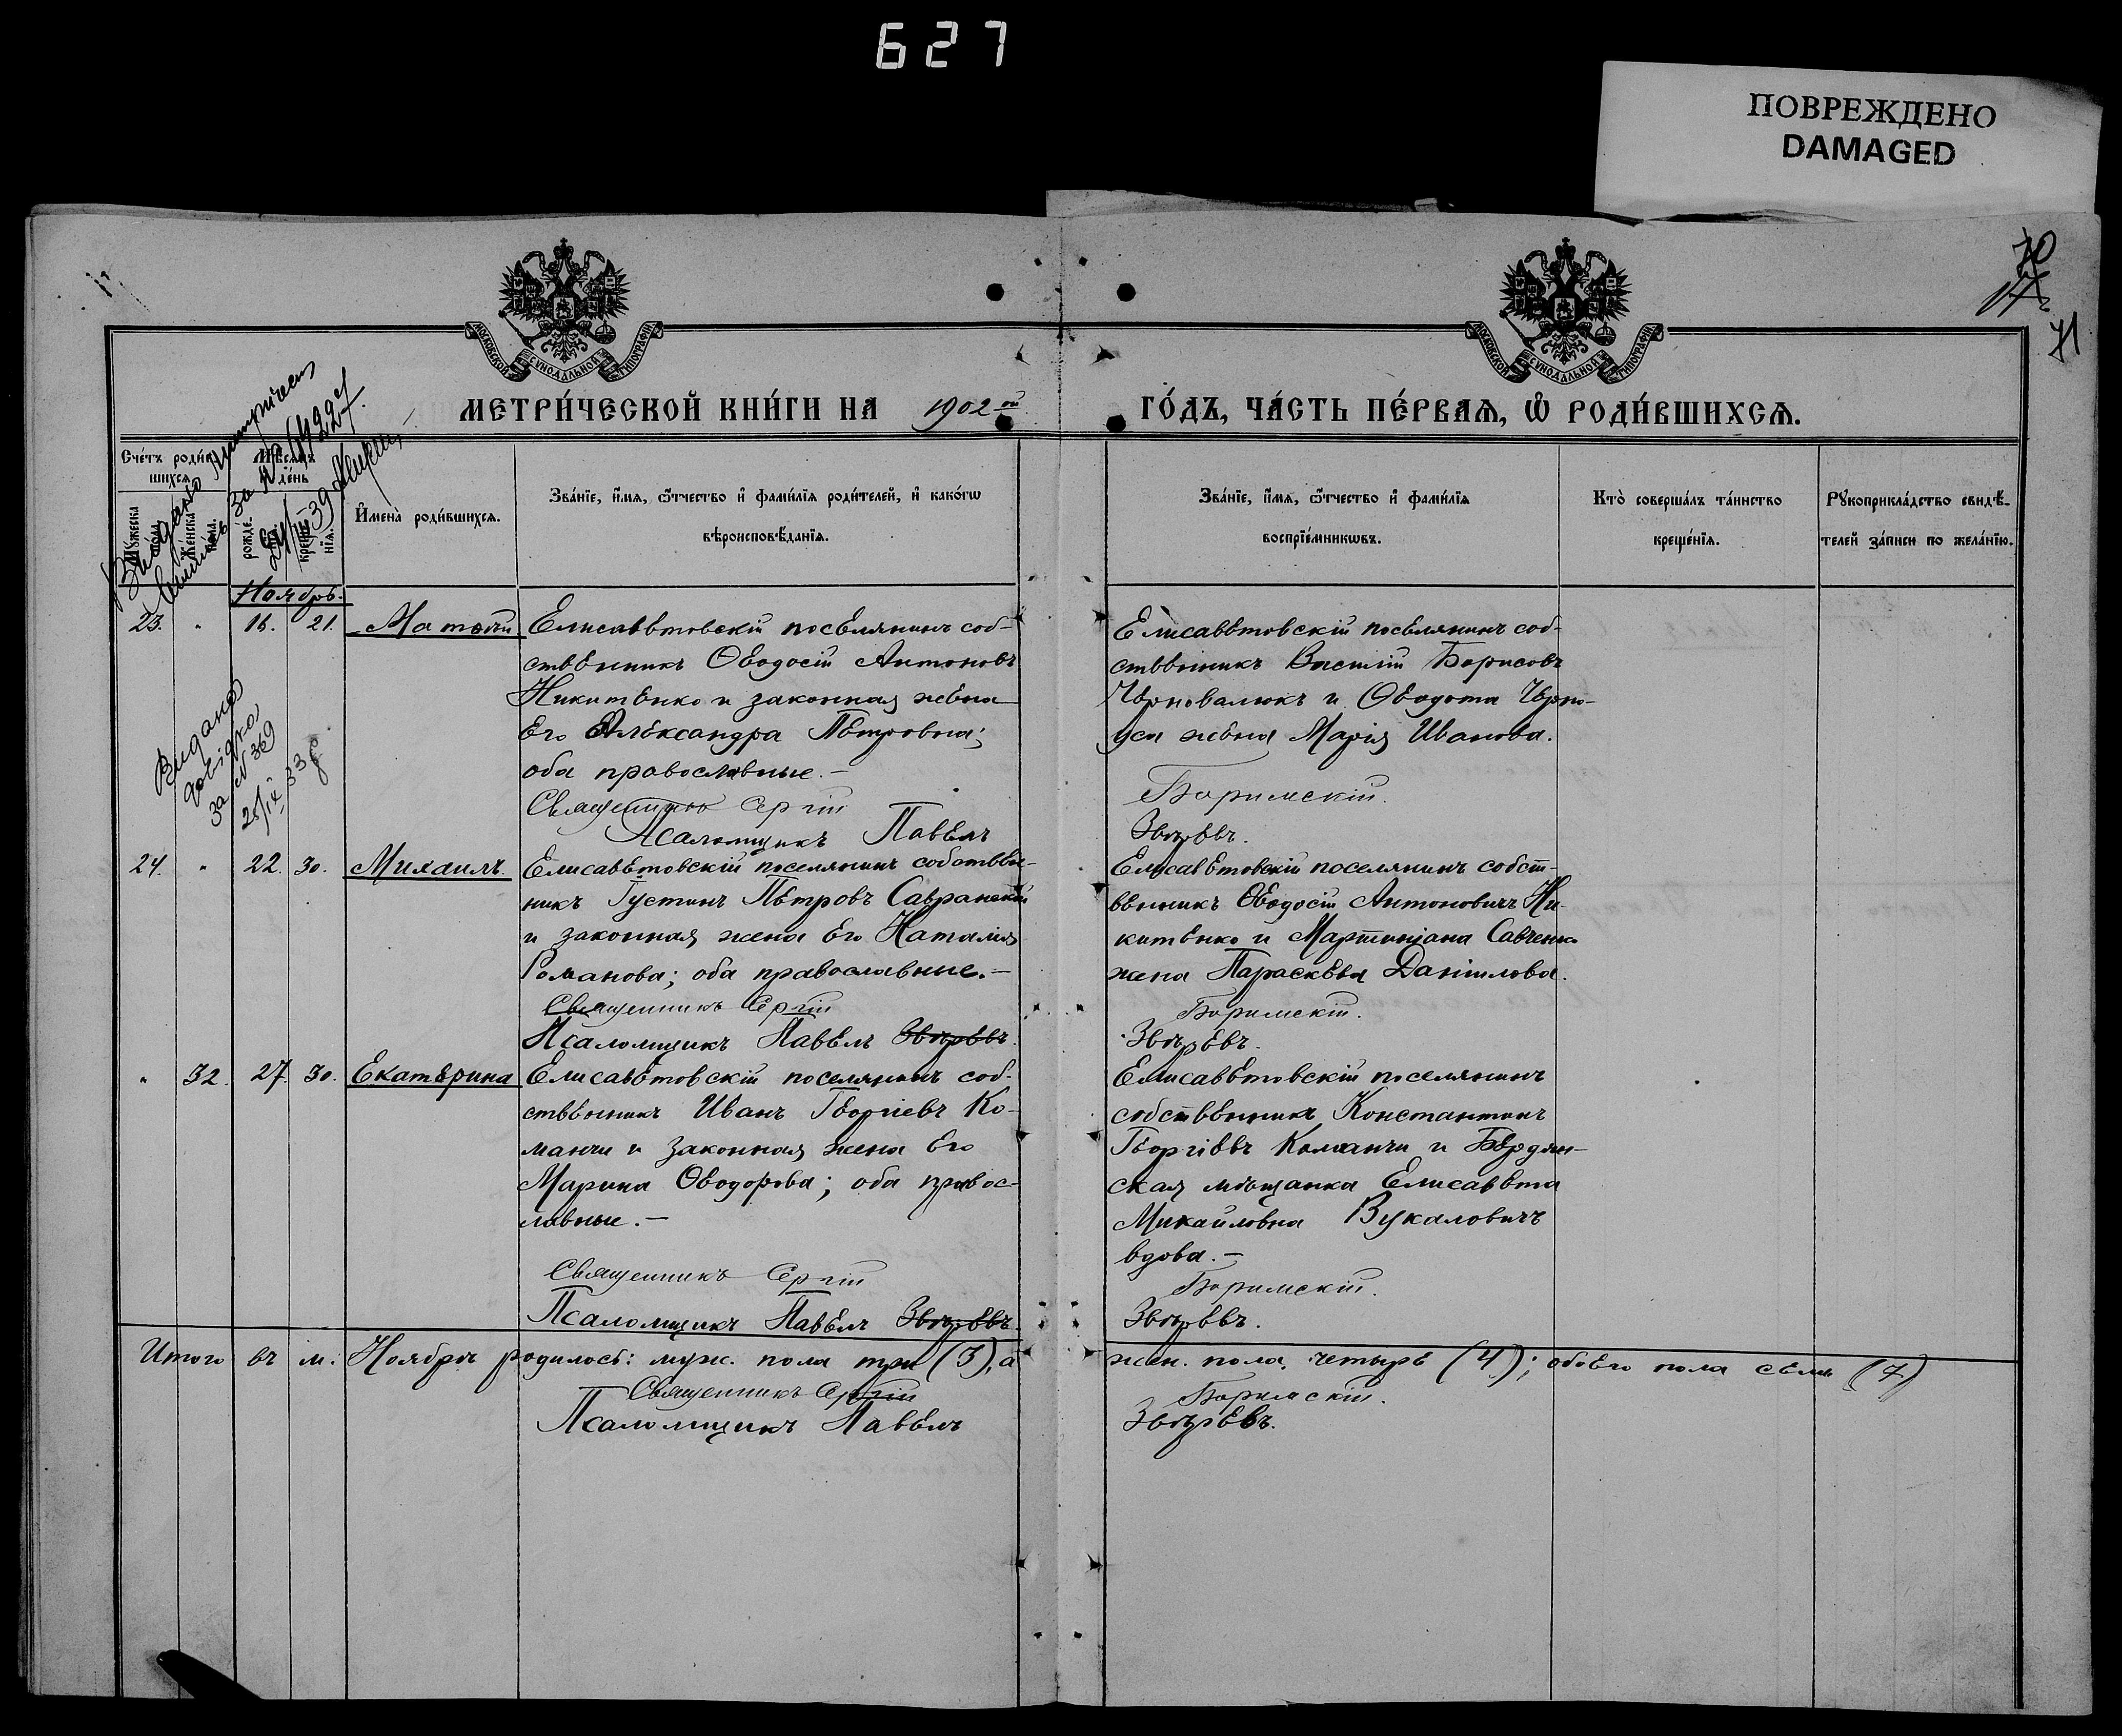 627
ПОВРЕЖДЕНО
DAMAGED
70
71
МОСКОВСКОЙ СѴНОДАЛЬНОЙ ТИПОГРАФІИ
МОСКОВСКОЙ СѴНОДАЛЬНОЙ ТИПОГРАФІИ
МЕТРИ́ЧЕСКОЙ КНИ́ГИ НА 1902 ой
ГО́ДЪ, ЧА́СТЬ ПЕ́РВАЯ, Ѡ РОДИ́ВШИХСЯ.
Счетъ роди́вшихся.
Мужеска пола.
Женска пола.
Мѣсяцъ и день
рожде́нія.
креще́нія.
И҆мена̀ роди́вшихся.
Зва́нїе, и҆́мя, ѻ҆́тчество и҆ фами́лїя роди́телей, и҆ како́гѡ
вѣроисповѣ́данїя.
Зва́нїе, и҆́мя, ѻ҆́тчество и҆ фами́лїя
воспрїе́мникѡвъ.
Кто̀ соверша́лъ та́инство
креще́нїя.
Рꙋкоприкла́дство свидѣ́-
телей за́писи по жела́нїю.
Выдано
за № 39
Видано
довідка
за № 369
25/IX 33
Ноябрь.
23. " 16. 21. Матѳѣй
Елисаветовскій поселянинъ соб-
ственникъ Ѳеодосій Антоновъ
Никитенко и законная жена
его Александра Петровна;
оба православные.-
Священникъ Сергій
Псаломщикъ Павелъ
Елисаветовскій поселянинъ соб-
ственникъ Василій Борисовъ
Черновалюкъ и Ѳеодота Черно-
уса жена Марія Иванова.
Боримскій.
Звѣревъ.
24. " 22. 30. Михаилъ.
Елисаветовскій поселянинъ собствен-
никъ Іустинъ Петровъ Савранскій
и законная жена его Наталія
Романова; оба православные.-
Священникъ Сергій
Псаломщикъ Павелъ Звѣревъ.
Елисаветовскій поселянинъ собст-
венникъ Ѳеодосій Антоновичъ Ни-
китенко и Мартиніана Савченко
жена Параскева Даніилова.
Боримскій.
Звѣревъ.
" 32. 27. 30. Екатерина
Елисаветовскій поселянинъ соб-
ственникъ Иванъ Георгіевъ Ко-
манчи и законная жена его
Марина Ѳеодорова; оба правос-
лавные.-
Священникъ Сергій
Псаломщикъ Павелъ Звѣревъ.
Елисаветовскій поселянинъ
собственникъ Константинъ
Георгіевъ Команчи и Бердян-
ская мѣщанка Елисавета
Михайловна Вукаловичъ
вдова.-
Боримскій.
Звѣревъ.
Итого въ м: Ноябрѣ родилось: муж. пола три (3), а жен. пола четыре (4); обоего пола семь (7)
Священникъ Сергій
Боримскій.
Псаломщикъ Павелъ
Звѣревъ.